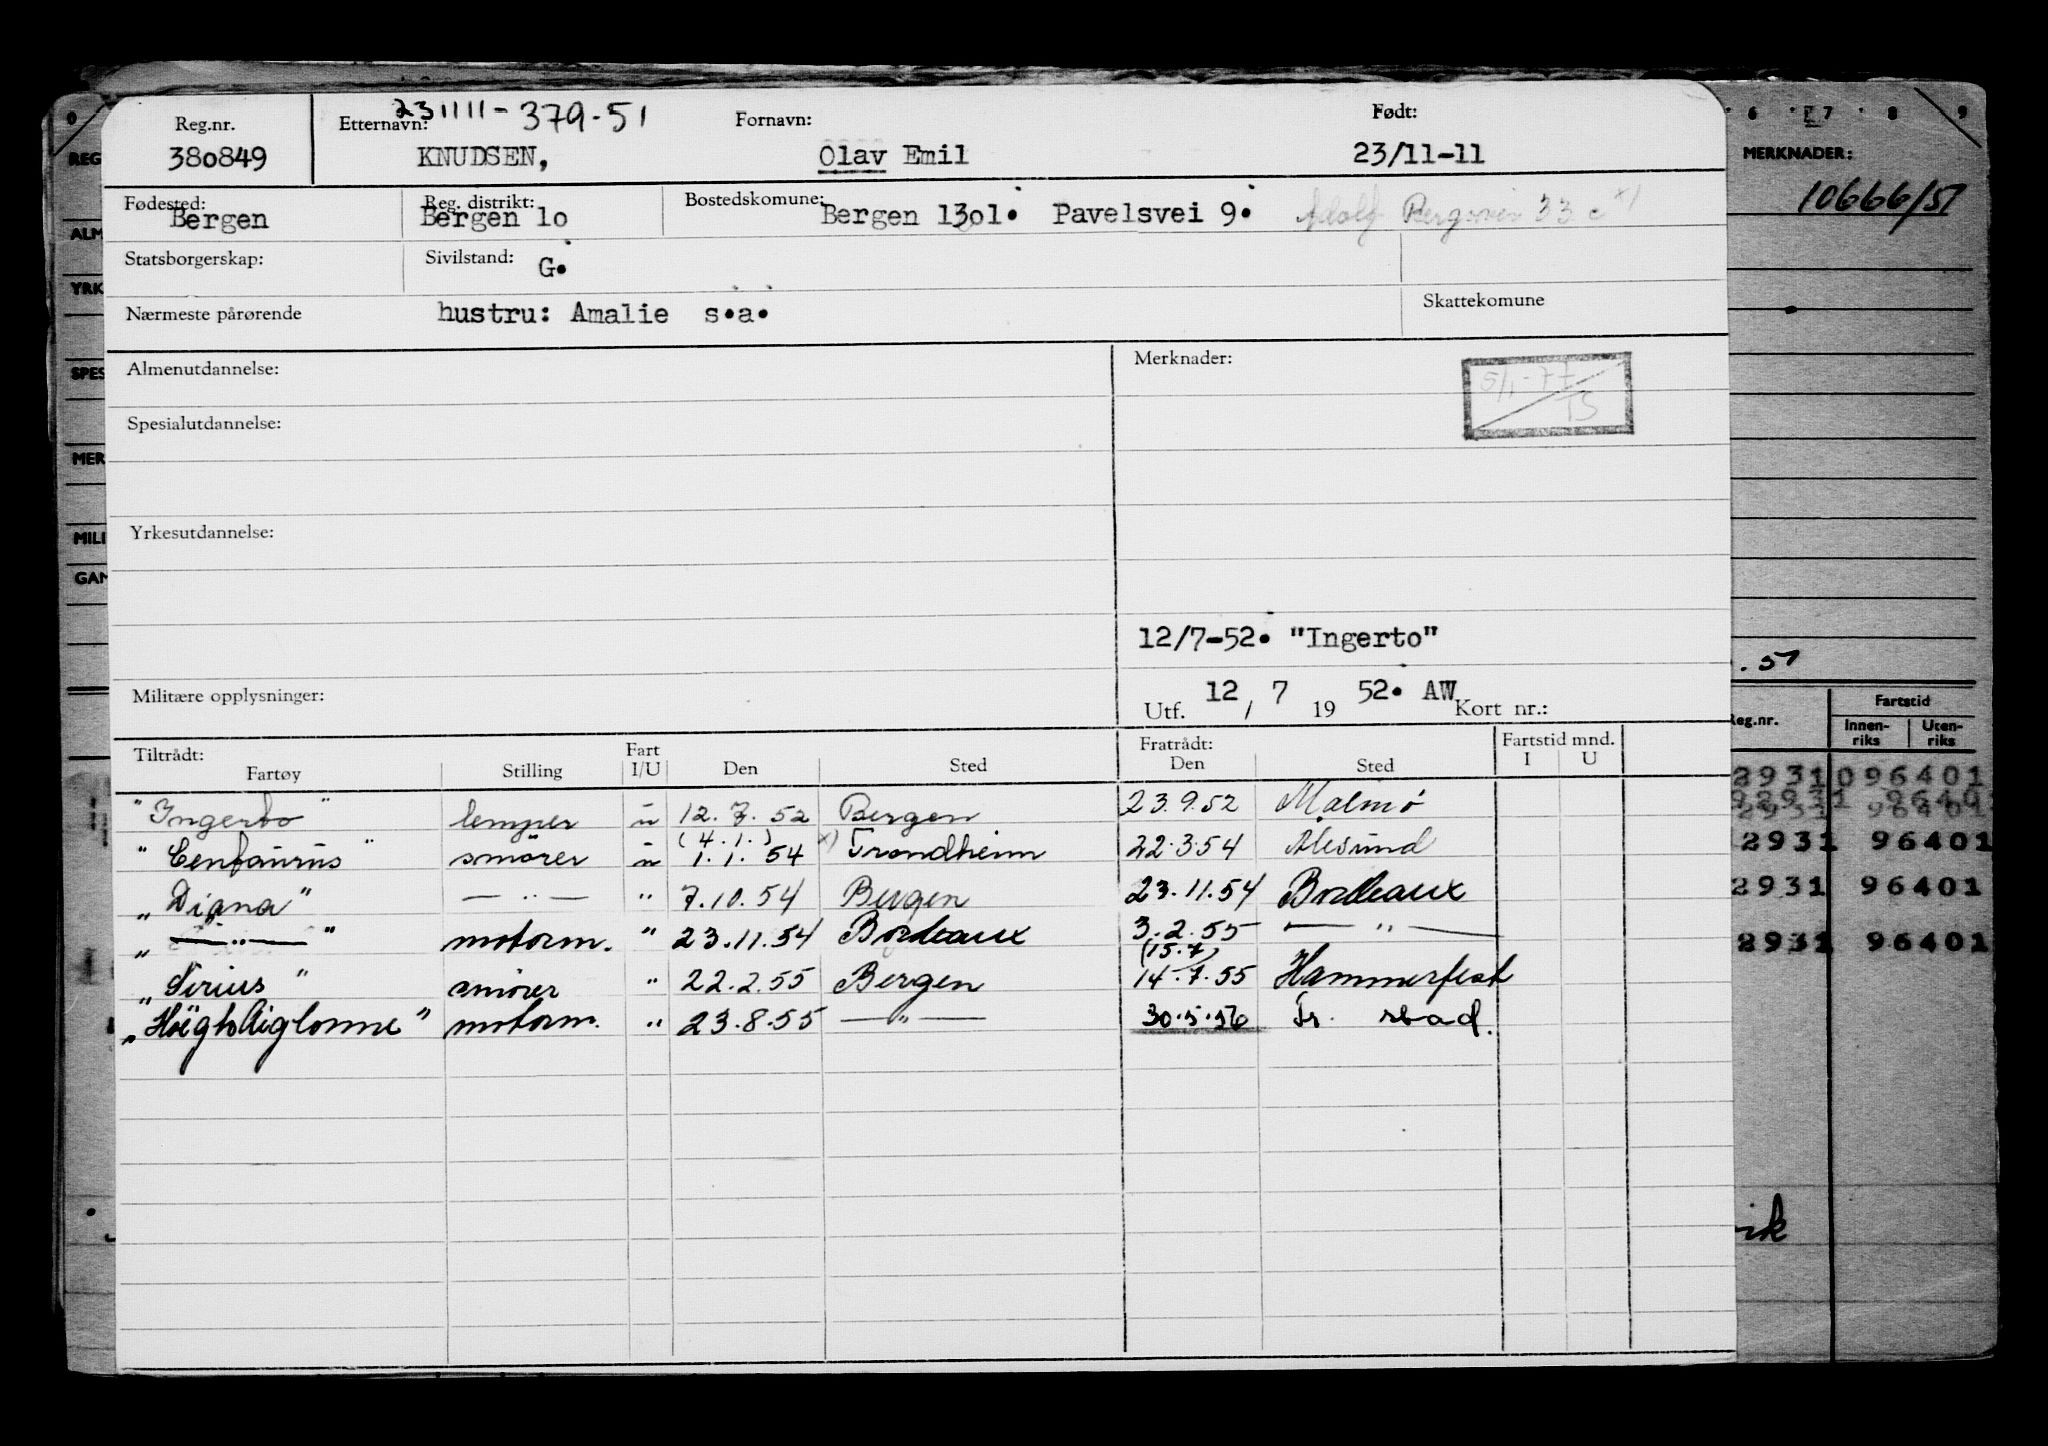 231111-379-51
Reg.nr. Etternavn: Fornavn: Født:
380849 KNUDSEN, Olav Emil 23/11-11
Fødested: Reg. distrikt: Bostedskomune:
Bergen Bergen 10 Bergen 1301. Pavelsvei 9. Adolf Bergsvei 33 c x)
Statsborgerskap: Sivilstand: G.
Nærmeste pårørende hustru: Amalie s.a. Skattekomune
Almenutdannelse: Merknader:
5/1-77
TS
Spesialutdannelse:
Yrkesutdannelse:
12/7-52. "Ingerto"
Militære opplysninger: Utf. 12 / 7 19 52. AW Kort nr.:
Tiltrådt: Fratrådt: Fartstid mnd.
Fartøy Stilling Fart I/U Den Sted Den Sted I U
"Ingerto" lemper u 12.7.52 Bergen 23.9.52 Malmø
(4.1.)
"Centaurus" smører u 1.1.54 x) Trondheim 22.3.54 Ålesund
"Diana" — " — " 7.10.54 Bergen 23.11.54 Bordeaux
" — " — " motorm. " 23.11.54 Bordeaux 3.2.55 — " —
(15.7)
"Sirius" smører " 22.2.55 Bergen 14.7.55 Hammerfest
"Høegh Aiglonne" motorm. " 23.8.55 — " — 30.5.56 Fr. stad.
0 6 7 8 9
REG
ALM
YRK
SPES
MER
MILI
GAM
MERKNADER:
10666/51
. 51
Reg.nr. Fartstid
Innen-riks Uten-riks
2931 096401
2931 96401
2931 96401
2931 96401
vik